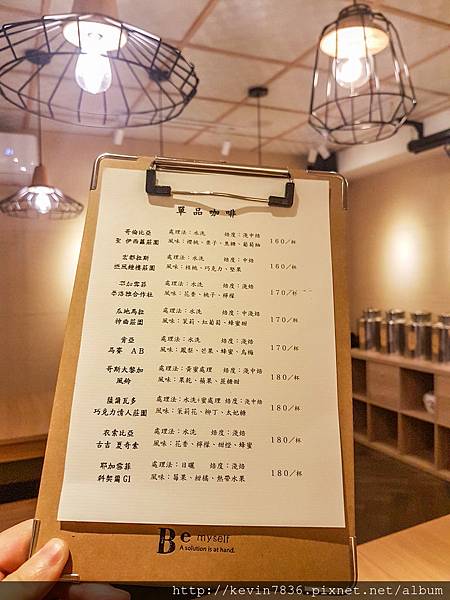 單品咖啡
哥倫比亞 處理法：水洗 焙度：淺中焙
聖 伊西蘿莊園 風味：櫻桃、栗子、焦糖、葡萄柚 160/杯
宏都拉斯 處理法：水洗 焙度：中焙
風味：核桃、巧克力、堅果 160/杯
耶加雪菲 處理法：水洗 焙度：淺焙
合作社 風味：花香、桃子、檸檬 170/杯
瓜地馬拉 處理法：水洗 焙度：中淺焙
神曲莊園 風味：茉莉、紅葡萄、蜂蜜甜 170/杯
肯亞 處理法：水洗 焙度：淺焙
馬賽 AB 風味：鳳梨、芒果、蜂蜜、烏梅 170/杯
哥斯大黎加 處理法：黃蜜處理 焙度：淺焙
風鈴 風味：果乾、蘋果、蔗糖甜 180/杯
薩爾瓦多 處理法：水洗+蜜處理 焙度：淺中焙
巧克力情人莊園 風味：茉莉花、柳丁、太妃糖 180/杯
衣索比亞 處理法：水洗 焙度：淺焙
古吉 夏奇索 風味：花香、檸檬、甜橙、蜂蜜 180/杯
耶加雪菲 處理法：日曬 焙度：淺焙
斜契爾G1 風味：莓果、柑橘、熱帶水果 180/杯
Be myself
A solution is at hand.
http://kevin7836.pixnet.net/album